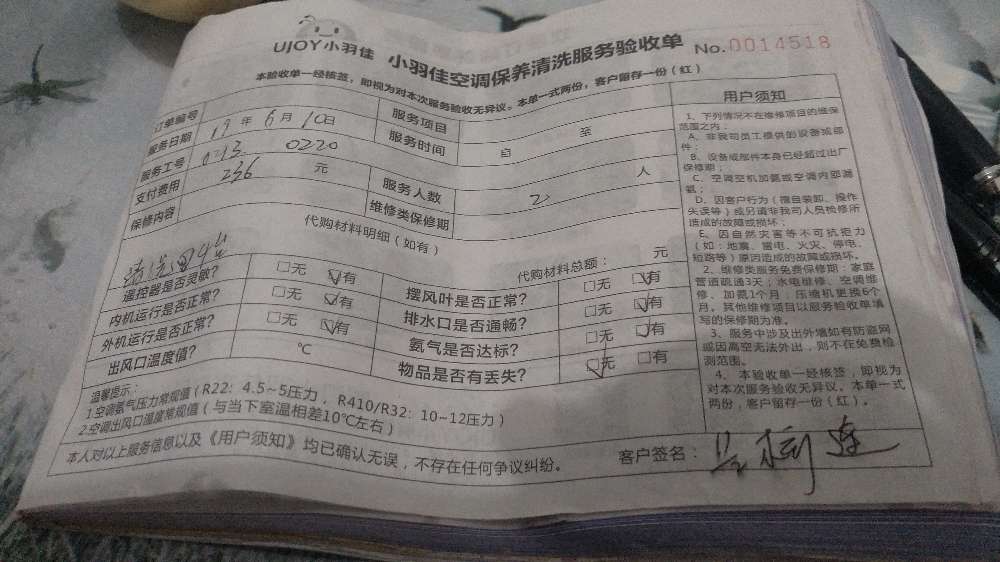 UJOY小羽佳 小羽佳空调保养清洗服务验收单 No.0014518
本验收单一经核签，即视为对本次服务验收无异议。本单一式两份，客户留存一份（红）
订单编号 服务项目
服务日期 19年6月10日 服务时间 自 至
服务工号 0213 0220 服务人数 2 人
支付费用 236 元 维修类保修期
保修内容
代购材料明细（如有） 代购材料总额： 元
清洗
遥控器是否灵敏？ □无 ☑有 摆风叶是否正常？ □无 ☑有
内机运行是否正常？ □无 ☑有 排水口是否通畅？ □无 ☑有
外机运行是否正常？ □无 ☑有 氨气是否达标？ □无 ☑有
出风口温度值？ ℃ 物品是否有丢失？ ☑无 □有
温馨提示：
1.空调氨气压力常规值（R22：4.5~5压力，R410/R32：10~12压力）
2.空调出风口温度常规值（与当下室温相差10℃左右）
本人对以上服务信息以及《用户须知》均已确认无误，不存在任何争议纠纷。 客户签名：
用户须知
1、下列情况不在维修项目的维保
范围之内：
A、非我司员工提供的设备或部
件；
B、设备或部件本身已经超过出厂
保修期；
C、空调空机加氨或空调内部漏
氨；
D、因客户行为（擅自装卸、操作
失误等）或另请非我司人员检修所
造成的故障或损坏；
E、因自然灾害等不可抗拒力
（如：地震、雷电、火灾、停电、
短路等）原因造成的故障或损坏。
2、维修类服务免费保修期：家庭
管道疏通3天；水电维修、空调维
修、加氨1个月；压缩机更换6个
月。其他维修项目以服务验收单填
写的保修期为准。
3、服务中涉及出外墙如有防盗网
或因高空无法外出，则不在免费检
测范围。
4、本验收单一经核签，即视为
对本次服务验收无异议。本单一式
两份，客户留存一份（红）。